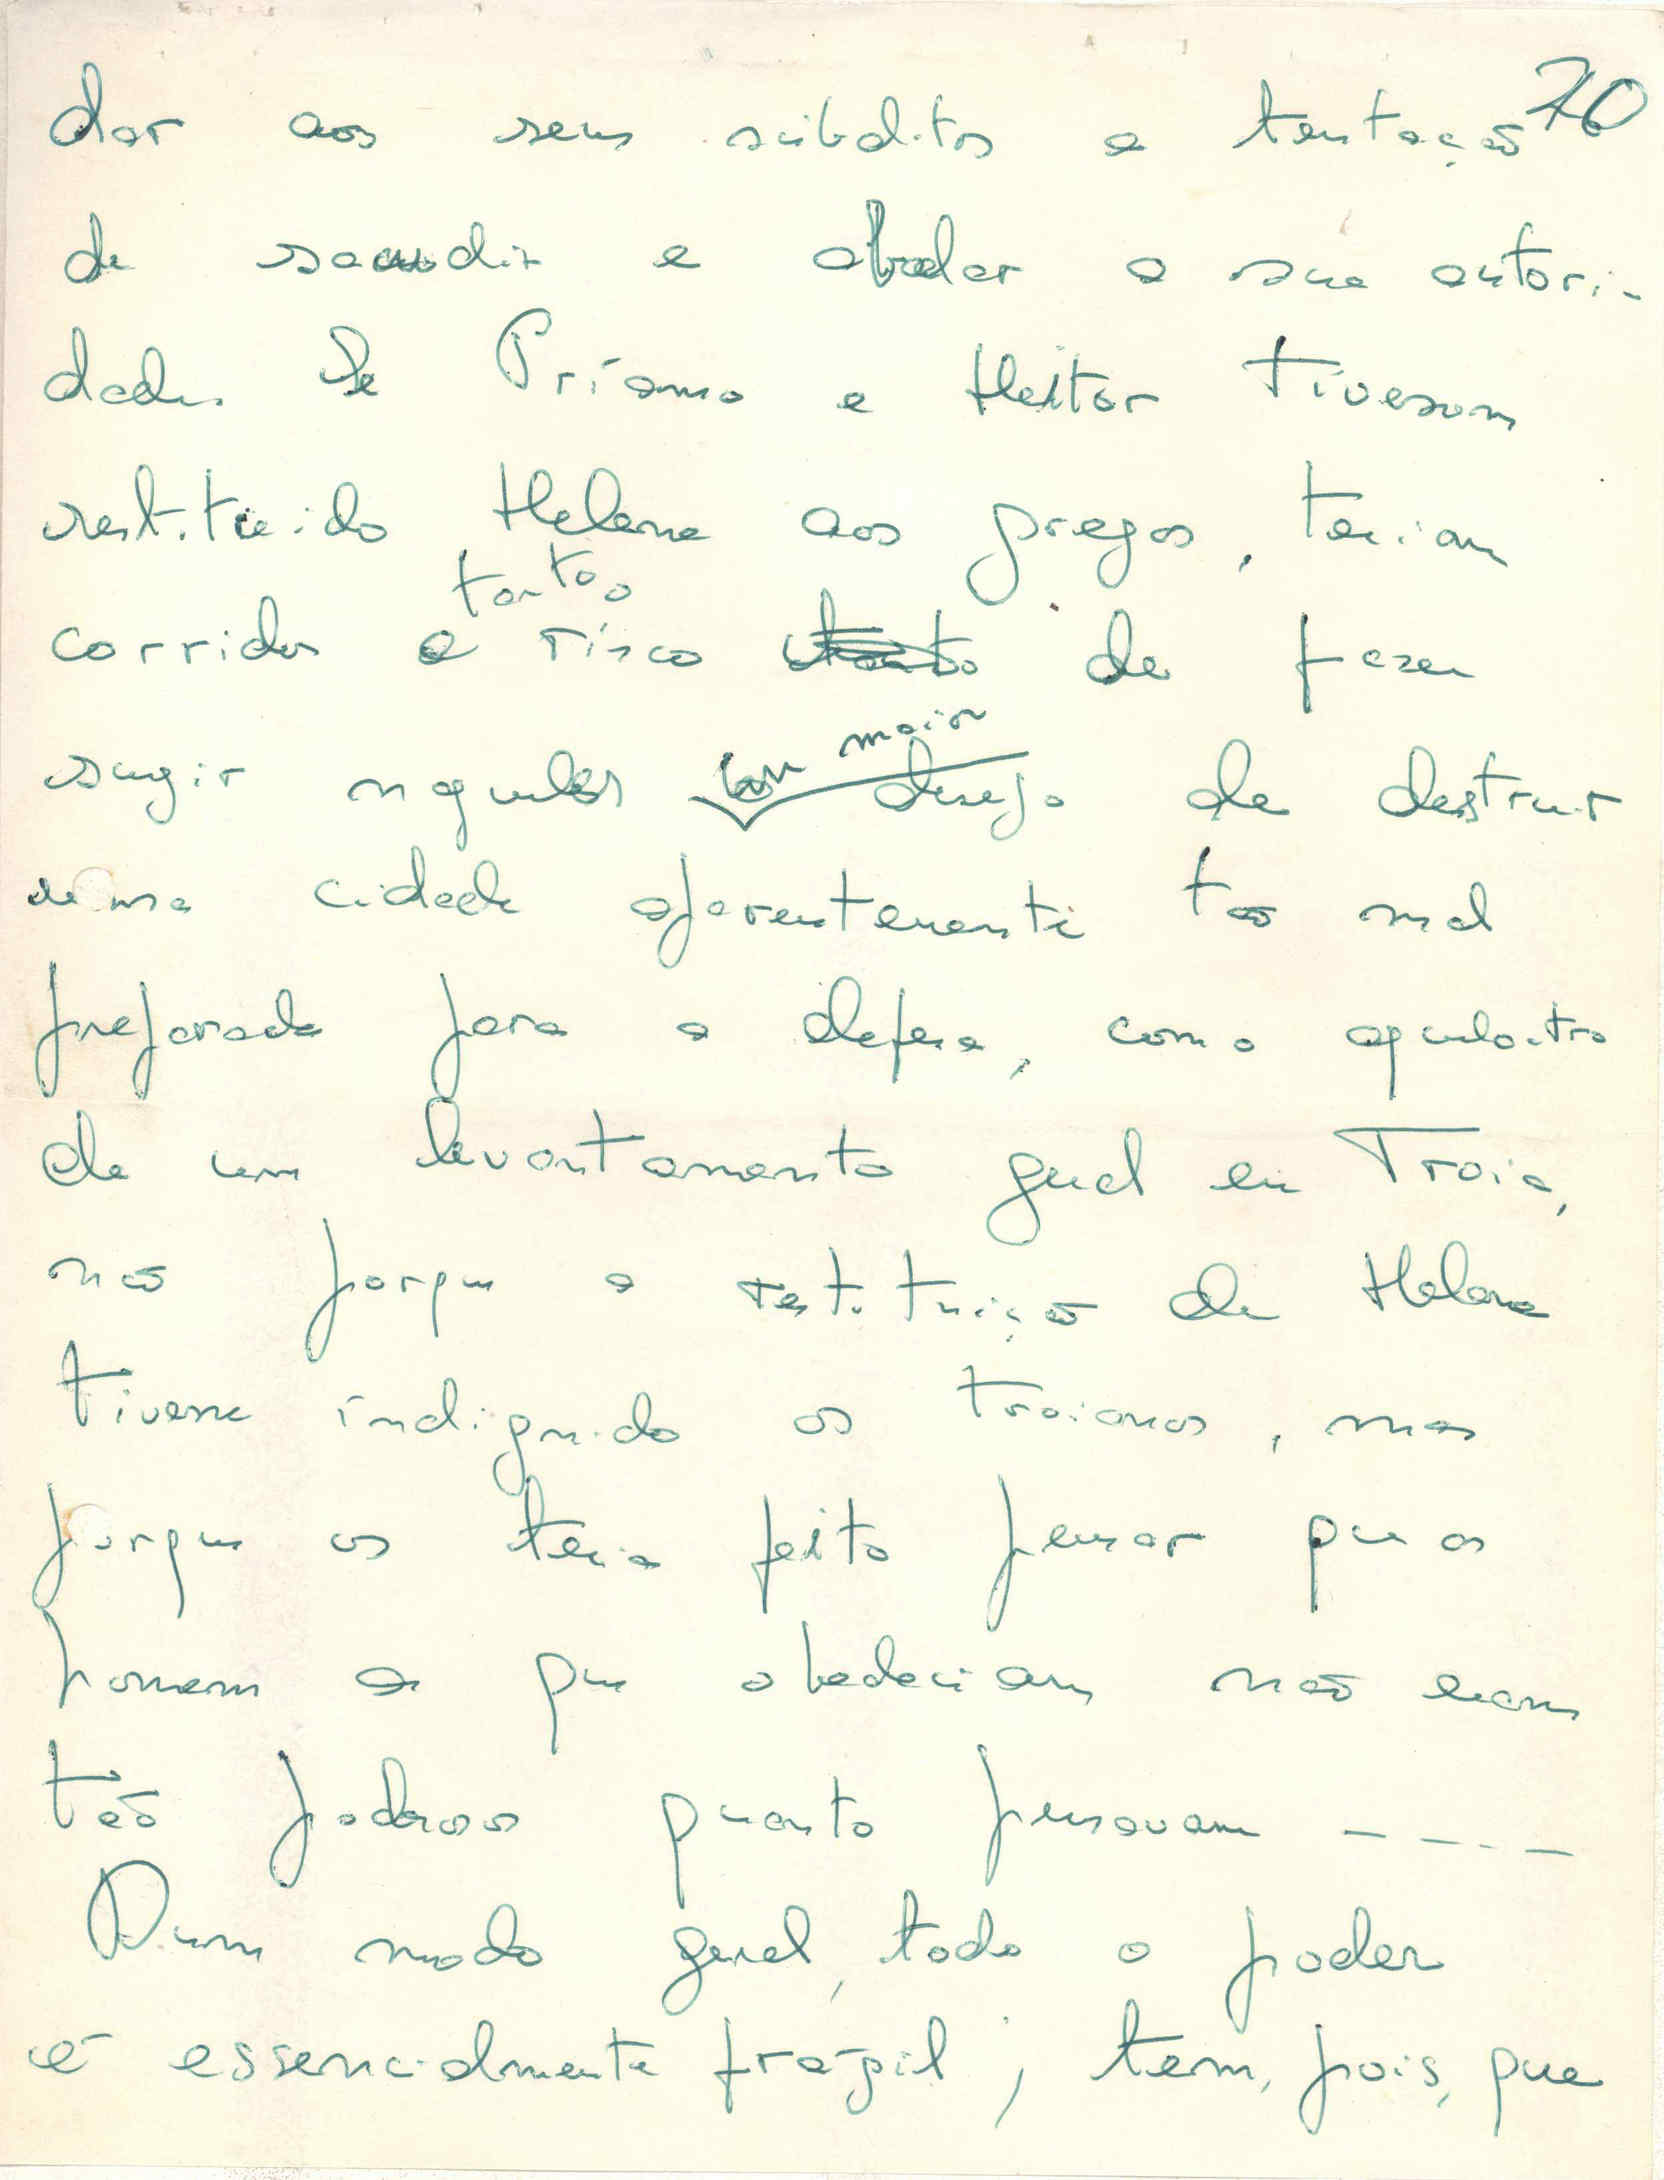 70
dar aos seus súbditos a tentação
de sacudir e abalar a sua autori-
dade. Se Príamo e Heitor tivessem
restituido Helena aos gregos, teriam
tanto o
corrido o risco tanto de fazer
maior
surgir naqueles um desejo de destruir
uma cidade aparentemente tão mal
preparada para a defesa, como aqueloutro
de um levantamento geral em Troia,
não porque a restituição de Helena
tivesse indignado os troianos, mas
porque os teria feito pensar que os
homens a que obedeciam não eram
tão poderosos quanto pensavam ----
Dum modo geral, todo o poder
é essencialmente frágil; tem, pois, que